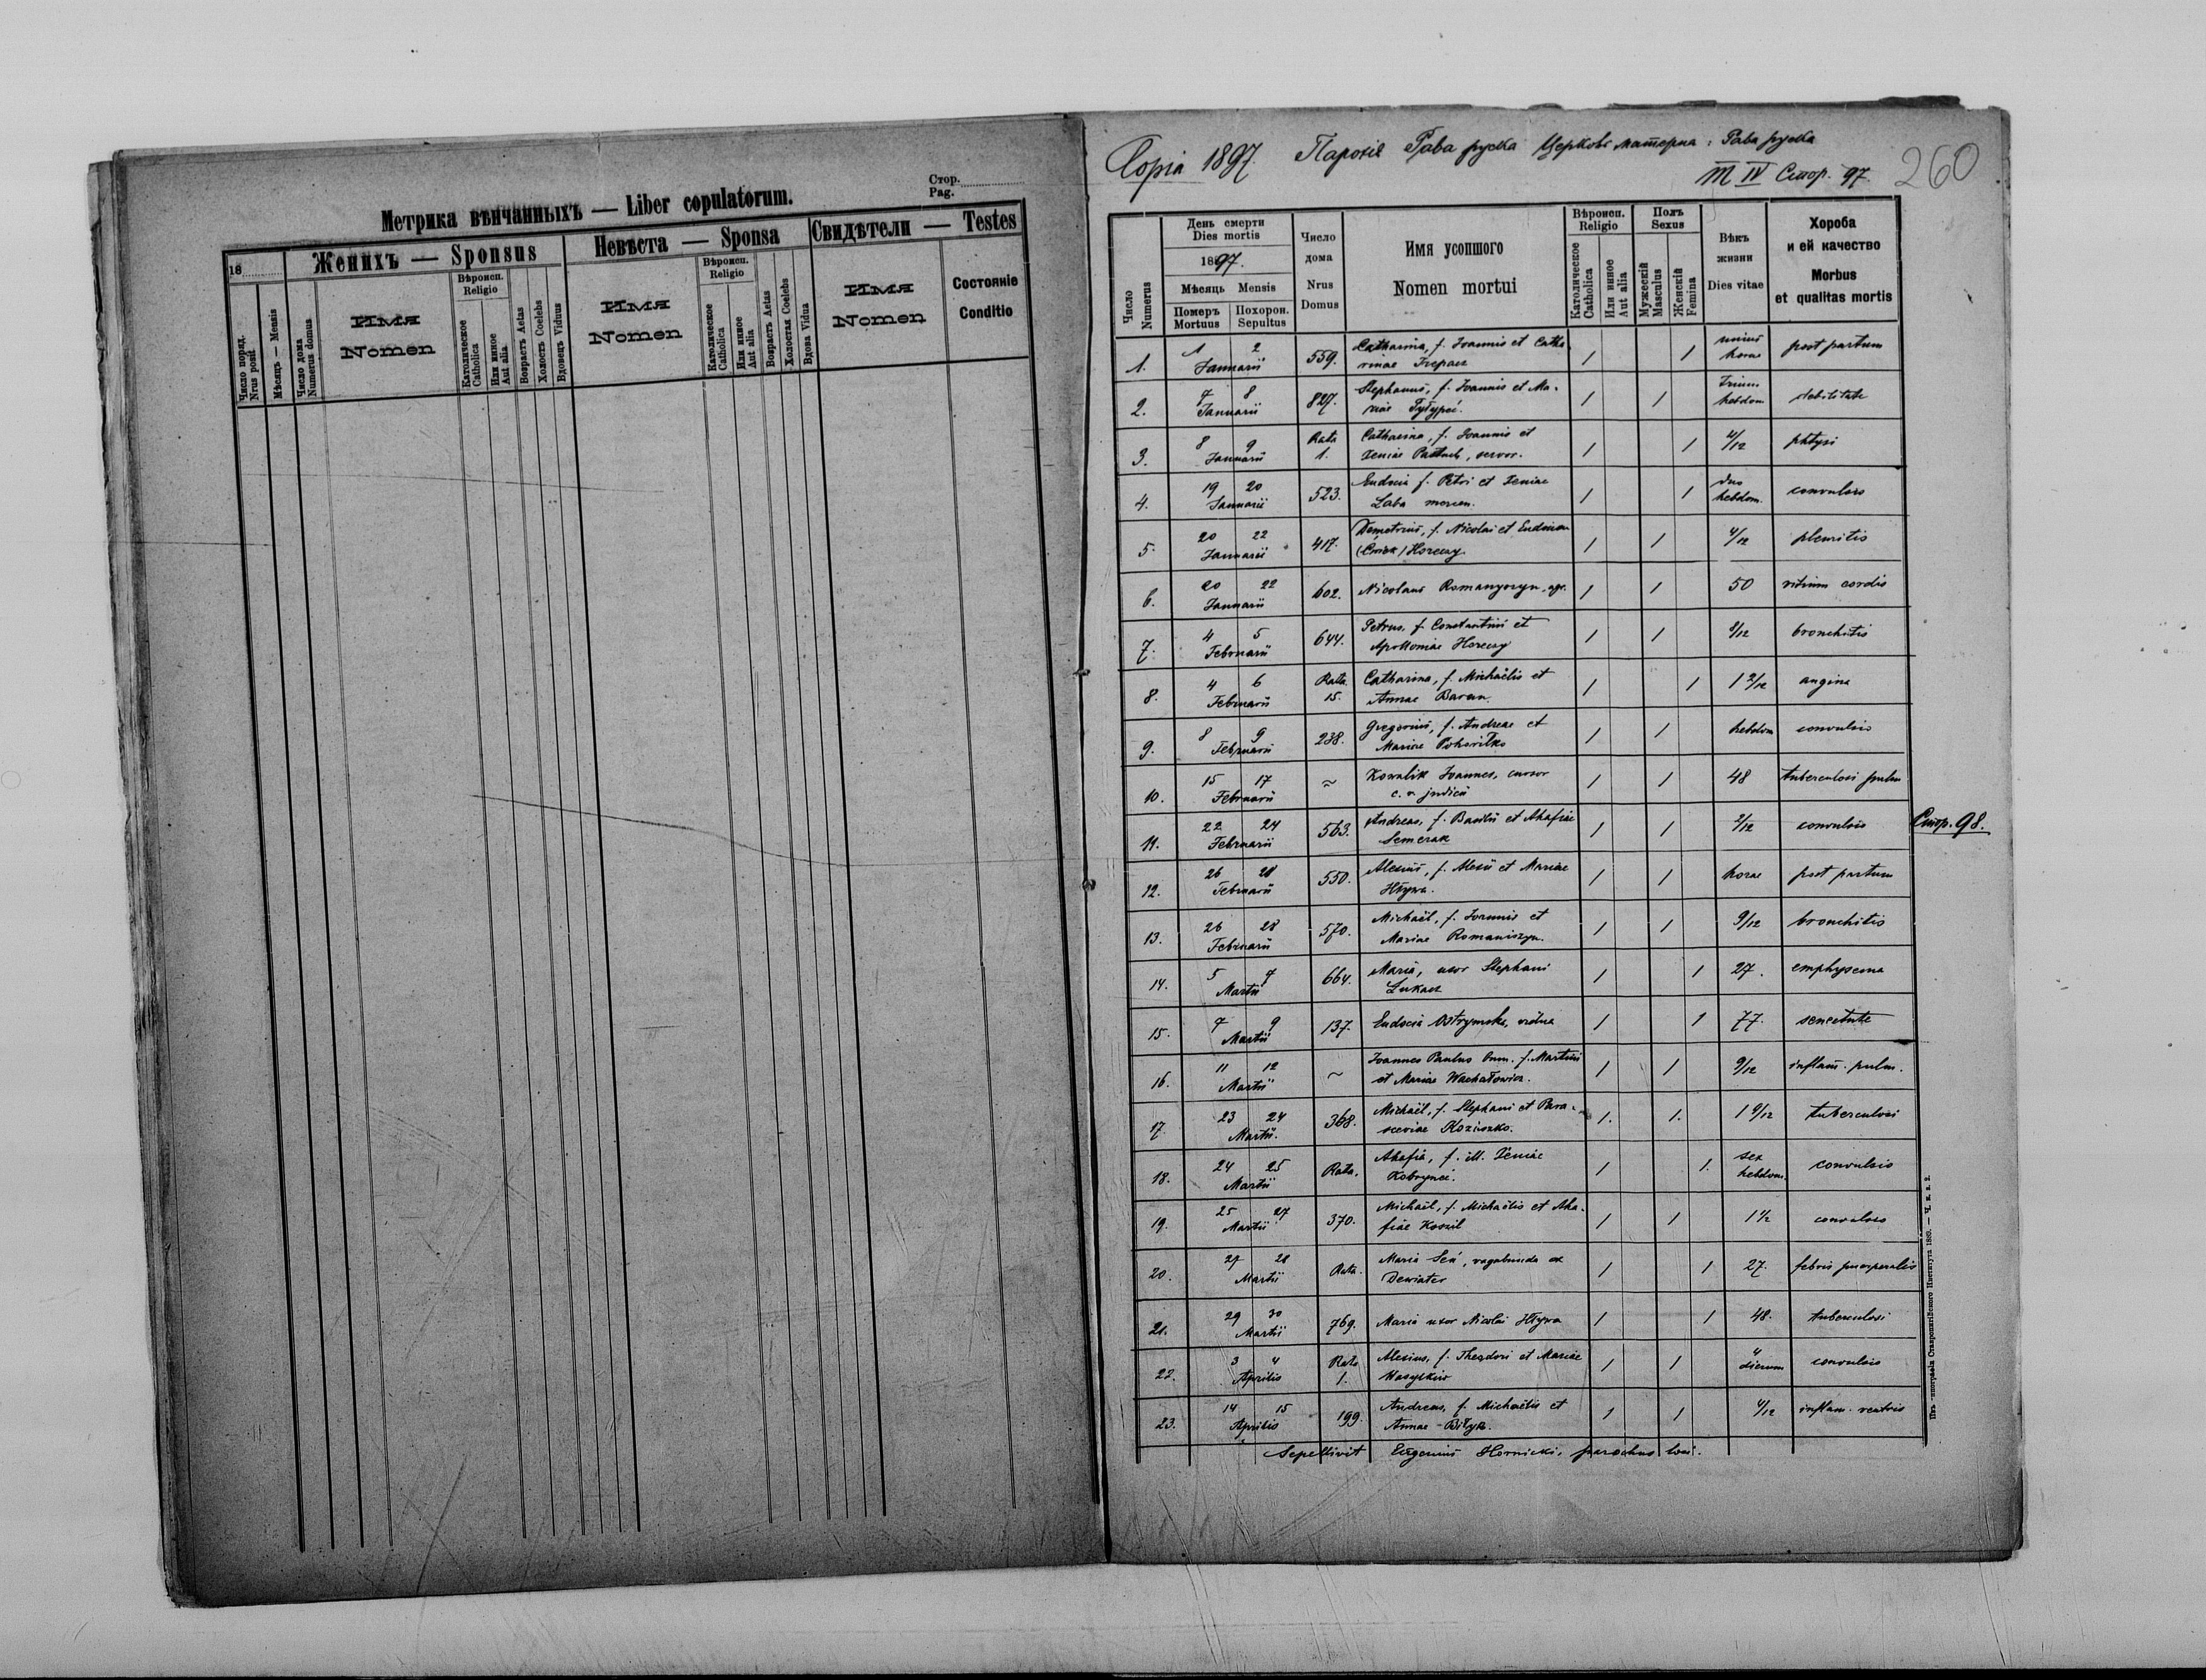 Стор.
Pag.
Метрика вѣнчанныхъ — Liber copulatorum.
18
Женихъ — Sponsus
Невѣста — Sponsa
Свидѣтели — Testes
Число поряд.
Nrus posit
Мѣсяцъ — Mensis
Число дома
Numerus domus
Имя
Nomen
Вѣроисп.
Religio
Католическое
Catholica
Или инное
Aut alia
Возрастъ Aetas
Холостъ Coelebs
Вдовецъ Viduus
Имя
Nomen
Вѣроисп.
Religio
Католическое
Catholica
Или инное
Aut alia
Возрастъ Aetas
Холостая Coelebs
Вдова Vidua
Имя
Nomen
Состояніе
Conditio
Copia 1897. Парохія Рава руска Церковь матерна: Рава руска
T IV Стор. 97.
260
Число
Numerus
День смерти
Dies mortis
1897.
Мѣсяць Mensis
Померъ
Mortuus
Похорон.
Sepultus
Число
дома
Nrus
Domus
Имя усопшого
Nomen mortui
Вѣроисп.
Religio
Католическое
Catholica
Или инное
Aut alia
Полъ
Sexus
Мужескій
Masculus
Женскій
Femina
Вѣкъ
жизни
Dies vitae
Хороба
и ей качество
Morbus
et qualitas mortis
1. 1 2 Januarii 559. Catharina, f. Joannis et Catha-
rinae 1 1 unius horae post partum
2. 7 8 Januarii 827. Stephanus, f. Joannis et Ma-
riae 1 1 trium hebdom. debilitate
3. 8 9 Januarii Rata 1. Catharina, f. Joannis et
Xeniae 1 1 4/12 phtysi
4. 19 20 Januarii 523. Eudocia f. Petri et Xeniae
Laba 1 1 duo hebdom. convulsio
5. 20 22 Januarii 417. Demetrius, f. Nicolai et
Horeczy 1 1 4/12 pleuritis
6. 20 22 Januarii 602. Nicolaus Romanyszyn, agr. 1 1 50 vitium cordis
7. 4 5 Februarii 644. Petrus, f. Constantini et
Apolloniae Horeczy 1 1 9/12 bronchitis
8. 4 6 Februarii Rata 15. Catharina, f. Michaëlis et
Annae Baran. 1 1 1 2/12 angina
9. 8 9 Februarii 238. Gregorius, f. Andreae et
Mariae 1 1 hebdom convulsio
10. 15 17 Februarii ~ Kowalik Joannes, cursor
c. r. judicii 1 1 48 tuberculosi pulm
11. 22 24 Februarii 563. Andreas, f. Basilii et Ahafiae
Semczak 1 1 2/12 convulsio
Стор. 98.
12. 26 28 Februarii 550. Alexius, f. Alexii et Mariae
Hływa. 1 1 horae post partum
13. 26 28 Februarii 570. Michaël, f. Joannis et
Mariae Romaniszyn. 1 1 9/12 bronchitis
14. 5 7 Martii 664. Maria, uxor Stephani
Łukacz 1 1 27. emphysema
15. 7 9 Martii 137. Eudocia Ostrymska, vidua 1 1 77. senectute
16. 11 12 Martii ~ Joannes Paulus f. Martini
et Mariae Wachałowicz. 1 1 9/12 inflam. pulm.
17. 23 24 Martii. 368. Michaël, f. Stephani et Para-
sceviae Koziuzko. 1. 1. 1 9/12 tuberculosi
18. 24 25 Martii Rata. Ahafia, f. ill. Xeniae
Kobrynci. 1 1. sex hebdom. convulsio
19. 25 27 Martii 370. Michaël, f. Michaëlis et Aha-
fiae 1 1 1 1/2 convulsio
20. 27 28 Martii Rata. Maria vagabunda ex
Dewiater 1 1 27. febris puerperalis
21. 29 30 Martii 769. Maria uxor Nicolai Hływa 1 1 48. tuberculosi
22. 3 4 Aprilis Rata 1. Alexius, f. Theodori et Mariae
Wasylkiw 1 1 4 dierum convulsio
23. 14 15 Aprilis 199. Andreas, f. Michaëlis et
Annae Biłyk. 1 1 4/12 inflam. ventris
Sepellivit Eugenius Hornicki, parochus loci.